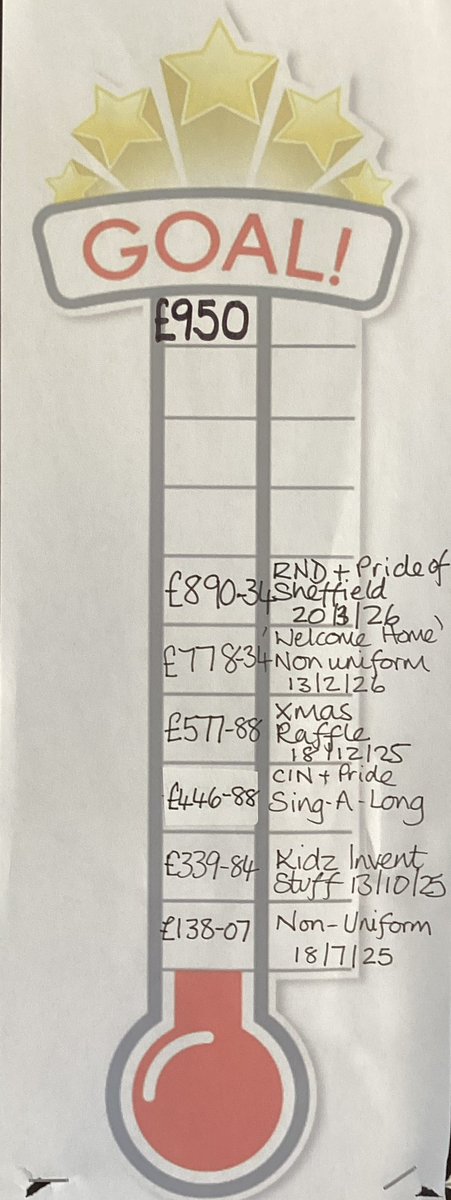 GOAL!
£950
£890-34
RND + Pride of
Sheffield
20/3/26
£778-34
'Welcome Home'
Non uniform
13/2/26
£577-88
Xmas
Raffle
18/12/25
£446-88
CIN + Pride
Sing-A-Long
£339-84
Kidz Invent
Stuff 13/10/25
£138-07
Non-Uniform
18/7/25